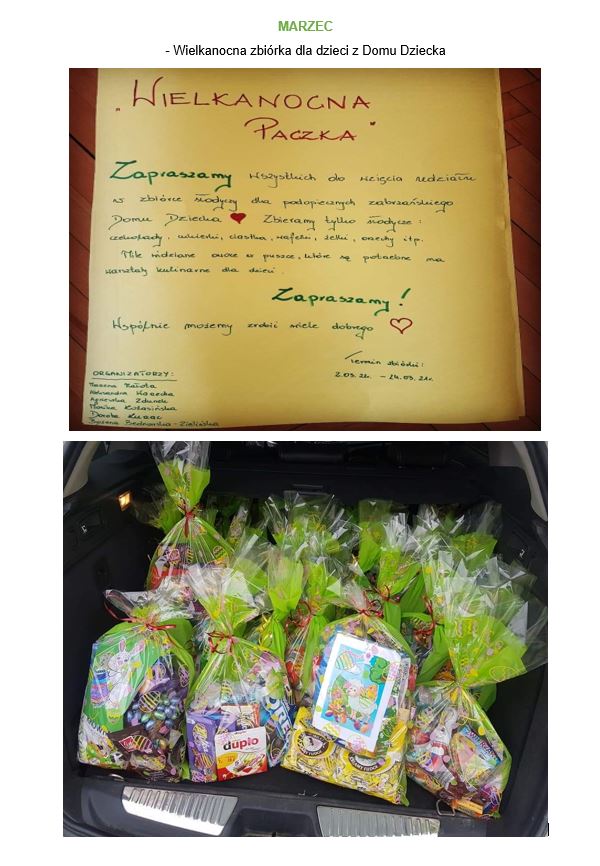 MARZEC
- Wielkanocna zbiórka dla dzieci z Domu Dziecka
„WIELKANOCNA
PACZKA"
Zapraszamy wszystkich do wzięcia udziału
w zbiórce słodyczy dla podopiecznych zabrzańskiego
Domu Dziecka ❤ Zbieramy tylko słodycze:
czekolady, cukierki, ciastka, wafelki, żelki, orzechy itp.
Mile widziane owoce w puszce, które są potrzebne na
warsztaty kulinarne dla dzieci.
Zapraszamy!
Wspólnie możemy zrobić wiele dobrego ♡
Termin zbiórki:
ORGANIZATORZY:
Aleksandra
Agnieszka Zdunek
Monika
Dorota
Bożena Bednarska - Zielińska
duplo